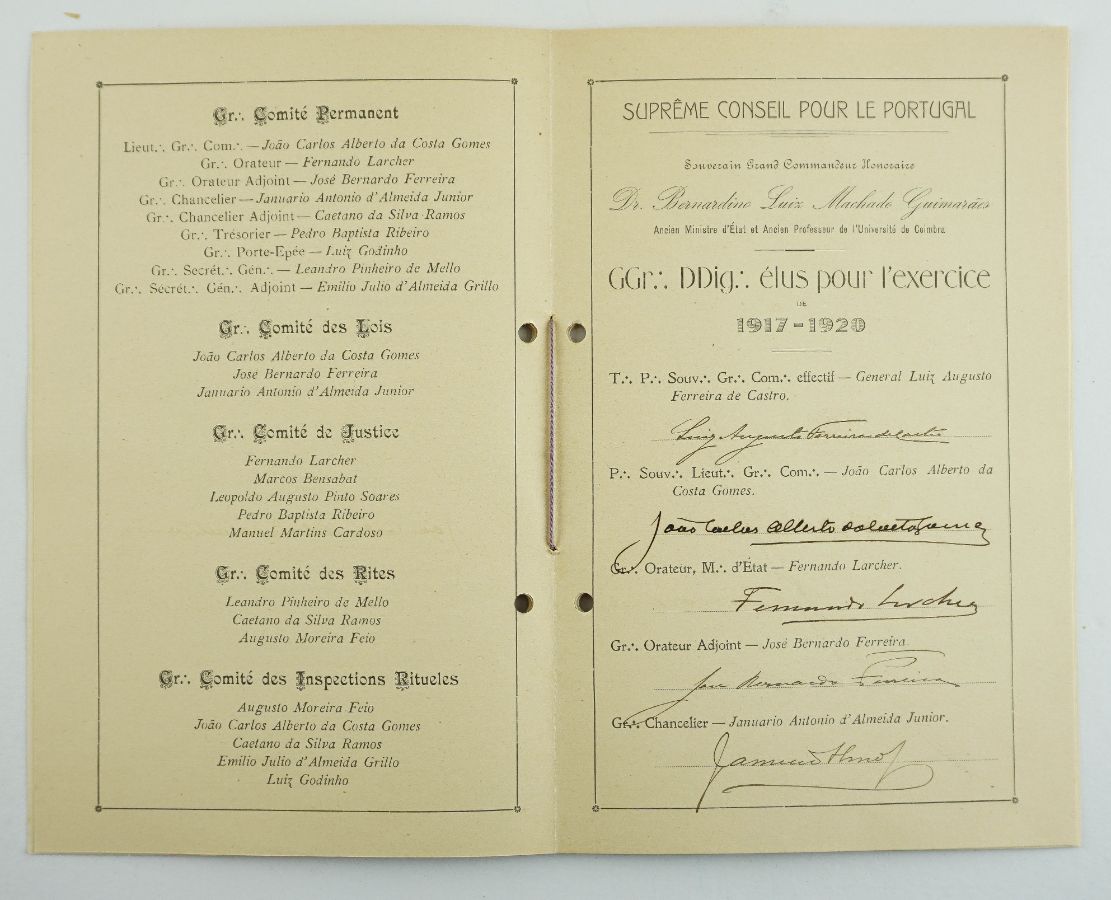 Gr∴ Comité Permanent
Lieut∴ Gr∴ Com∴ — João Carlos Alberto da Costa Gomes
Gr∴ Orateur — Fernando Larcher
Gr∴ Orateur Adjoint — José Bernardo Ferreira
Gr∴ Chancelier — Januario Antonio d'Almeida Junior
Gr∴ Chancelier Adjoint — Caetano da Silva Ramos
Gr∴ Trésorier — Pedro Baptista Ribeiro
Gr∴ Porte-Epée — Luiz Godinho
Gr∴ Secrét∴ Gén∴ — Leandro Pinheiro de Mello
Gr∴ Secrét∴ Gén∴ Adjoint — Emilio Julio d'Almeida Grillo
Gr∴ Comité des Lois
João Carlos Alberto da Costa Gomes
José Bernardo Ferreira
Januario Antonio d'Almeida Junior
Gr∴ Comité de Justice
Fernando Larcher
Marcos Bensabat
Leopoldo Augusto Pinto Soares
Pedro Baptista Ribeiro
Manuel Martins Cardoso
Gr∴ Comité des Rites
Leandro Pinheiro de Mello
Caetano da Silva Ramos
Augusto Moreira Feio
Gr∴ Comité des Inspections Rituelles
Augusto Moreira Feio
João Carlos Alberto da Costa Gomes
Caetano da Silva Ramos
Emilio Julio d'Almeida Grillo
Luiz Godinho
SUPRÊME CONSEIL POUR LE PORTUGAL
Souverain Grand Commandeur Honoraire
Dr. Bernardino Luiz Machado Guimarães
Ancien Ministre d'État et Ancien Professeur de l'Université de Coimbra
GGr∴ DDig∴ élus pour l'exercice
DE
1917-1920
T∴ P∴ Souv∴ Gr∴ Com∴ effectif — General Luiz Augusto
Ferreira de Castro.
Luiz Augusto Ferreira de Castro
P∴ Souv∴ Lieut∴ Gr∴ Com∴ — João Carlos Alberto da
Costa Gomes.
João Carlos Alberto da Costa Gomes
Gr∴ Orateur, M∴ d'État — Fernando Larcher.
Fernando Larcher
Gr∴ Orateur Adjoint — José Bernardo Ferreira.
José Bernardo Ferreira
Gr∴ Chancelier — Januario Antonio d'Almeida Junior.